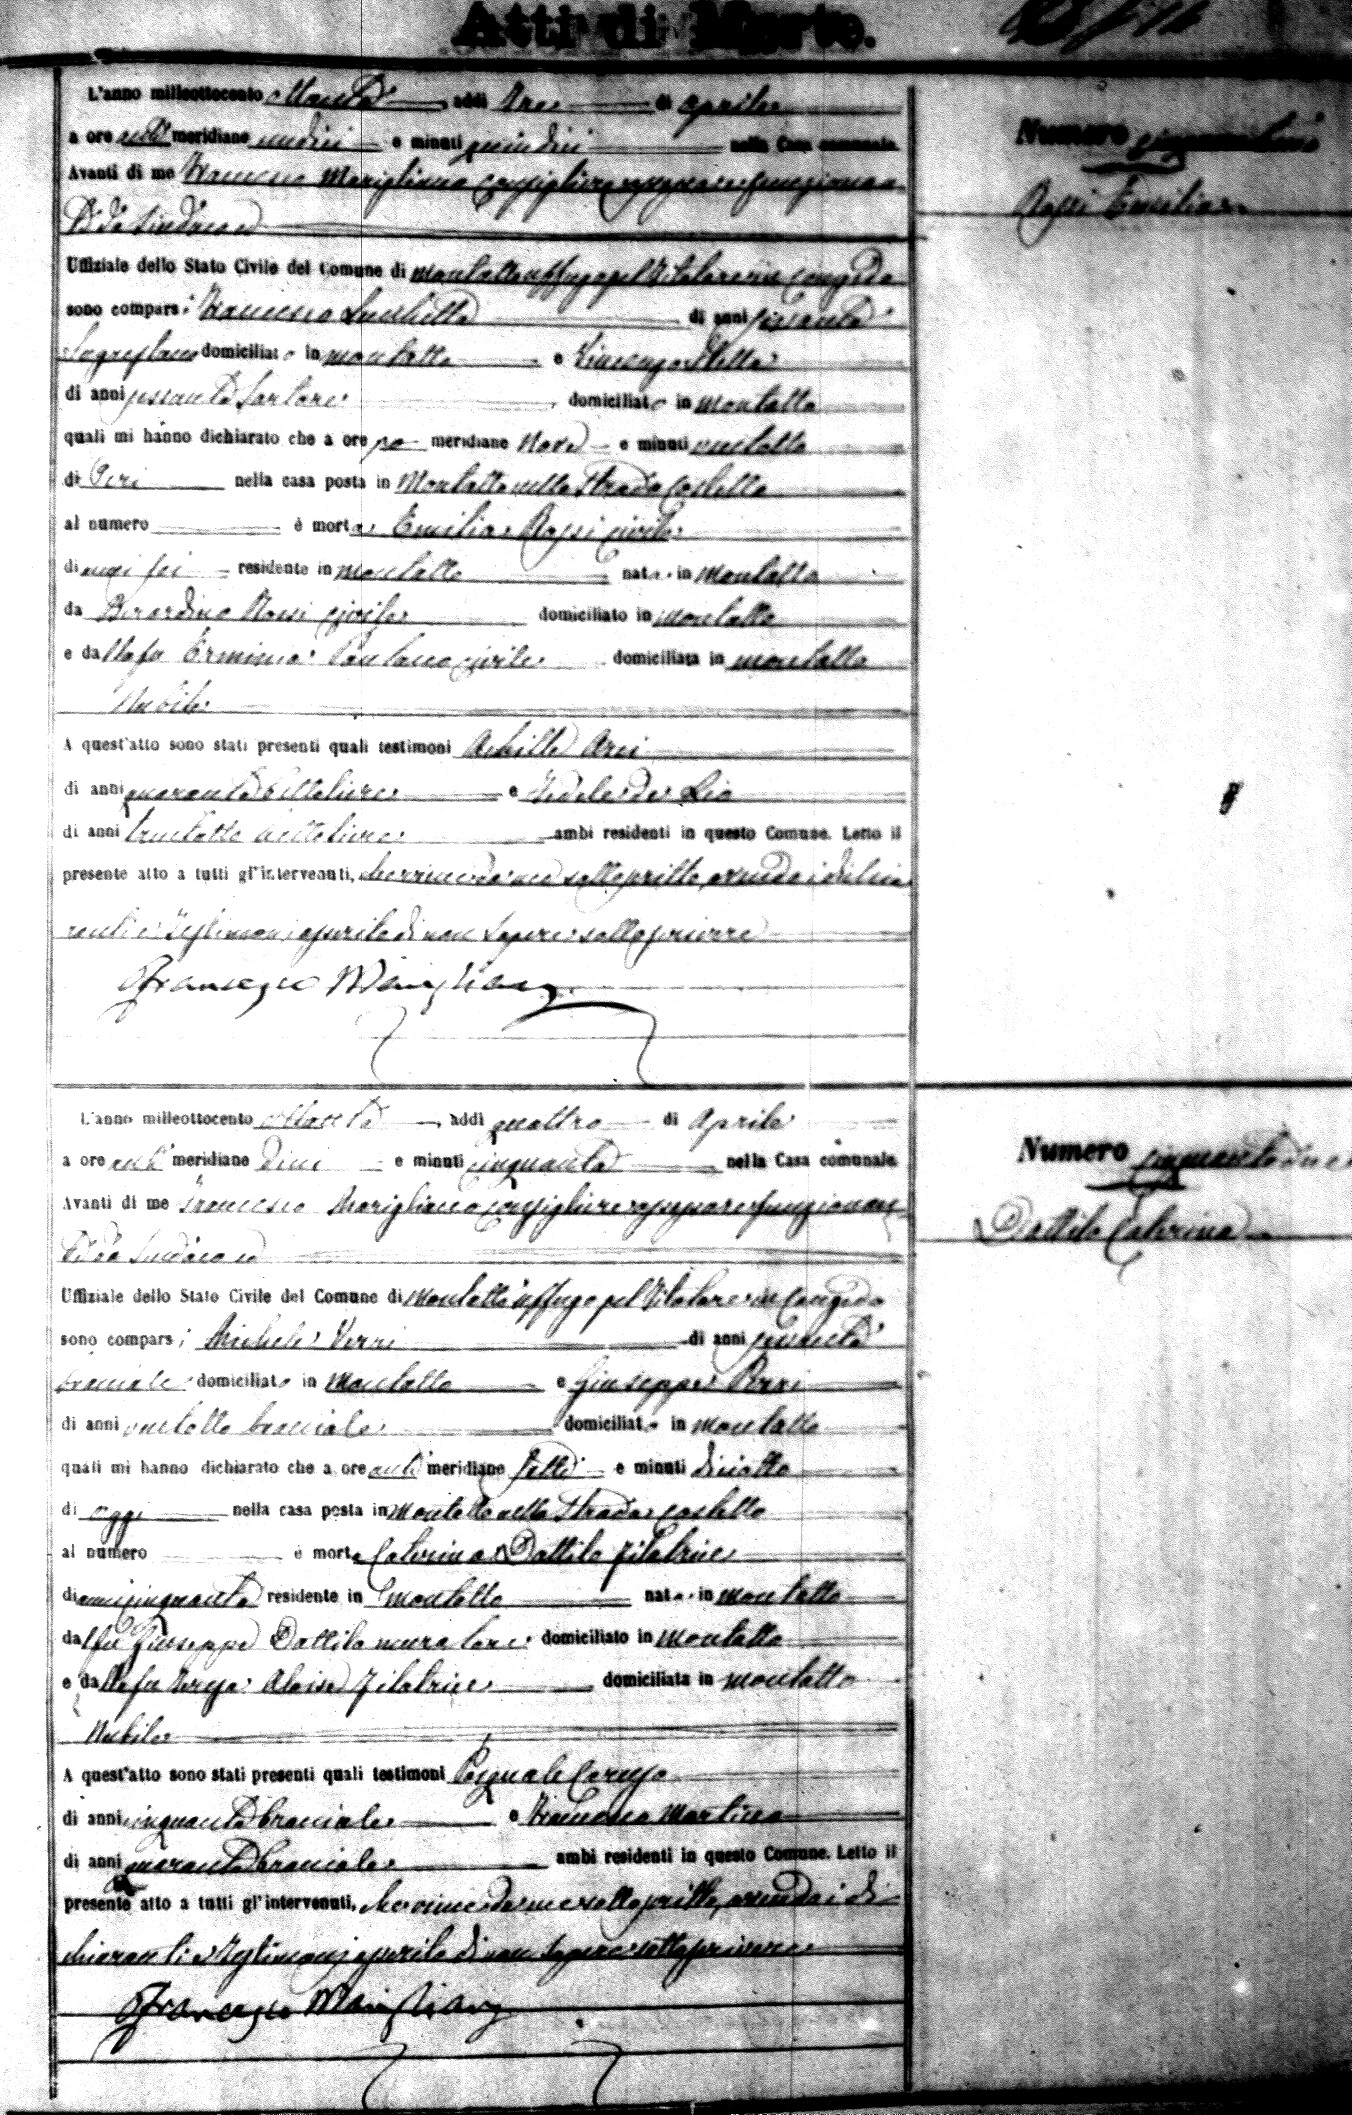 Atti di Morte.
L'anno milleottocento ottanta addì tre di Aprile
a ore anti meridiane undici e minuti quindici nella Casa comunale.
Avanti di me Francesco Marigliano Consigliere funzionan
te da Sindaco
Uffiziale dello Stato Civile del Comune di Montalto Uffugo pel Titolare in Congedo
sono comparsi Francesco di anni sessanta
domiciliato in Montalto e Vincenzo Stella
di anni sessanta Sartore domiciliato in Montalto
quali mi hanno dichiarato che a ore po meridiane Nove e minuti ventotto
di Ieri nella casa posta in Montalto nella Strada Castello
al numero è morta Emilia Rossi civile
di anni sei residente in Montalto nata in Montalto
da Berardino Rossi civile domiciliato in Montalto
e dalla fu Erminia civile domiciliata in Montalto
Nubile
A quest'atto sono stati presenti quali testimoni Achille Arci
di anni quaranta e Fedele de Lio
di anni trentotto ambi residenti in questo Comune. Letto il
presente atto a tutti gl'intervenuti, che viene da me sottoscritto, avendo i dichia
ranti e Testimoni asserito di non sapere sottoscrivere
Francesco Marigliano
Numero cinquantuno
Rossi Emilia
L'anno milleottocento ottanta addì quattro di Aprile
a ore anti meridiane dieci e minuti cinquanta nella Casa comunale.
Avanti di me Francesco Marigliano Consigliere funzionan
te da Sindaco
Uffiziale dello Stato Civile del Comune di Montalto Uffugo pel Titolare in Congedo
sono comparsi Michele Perri di anni sessanta
bracciale domiciliato in Montalto e Giuseppe Perri
di anni ventotto bracciale domiciliato in Montalto
quali mi hanno dichiarato che a ore anti meridiane sette e minuti diciotto
di oggi nella casa posta in Montalto nella Strada Castello
al numero è morta Caterina Dattilo filatrice
di anni cinquanta residente in Montalto nata in Montalto
dal fu Giuseppe Dattilo muratore domiciliato in Montalto
e dalla fu Teresa Aloise filatrice domiciliata in Montalto
Nubile
A quest'atto sono stati presenti quali testimoni Pasquale Caruso
di anni cinquanta bracciale e Francesco Martino
di anni quaranta bracciale ambi residenti in questo Comune. Letto il
presente atto a tutti gl'intervenuti, che viene da me sottoscritto, avendo i di
chiaranti e Testimoni asserito di non sapere sottoscrivere
Francesco Marigliano
Numero cinquantadue
Dattilo Caterina